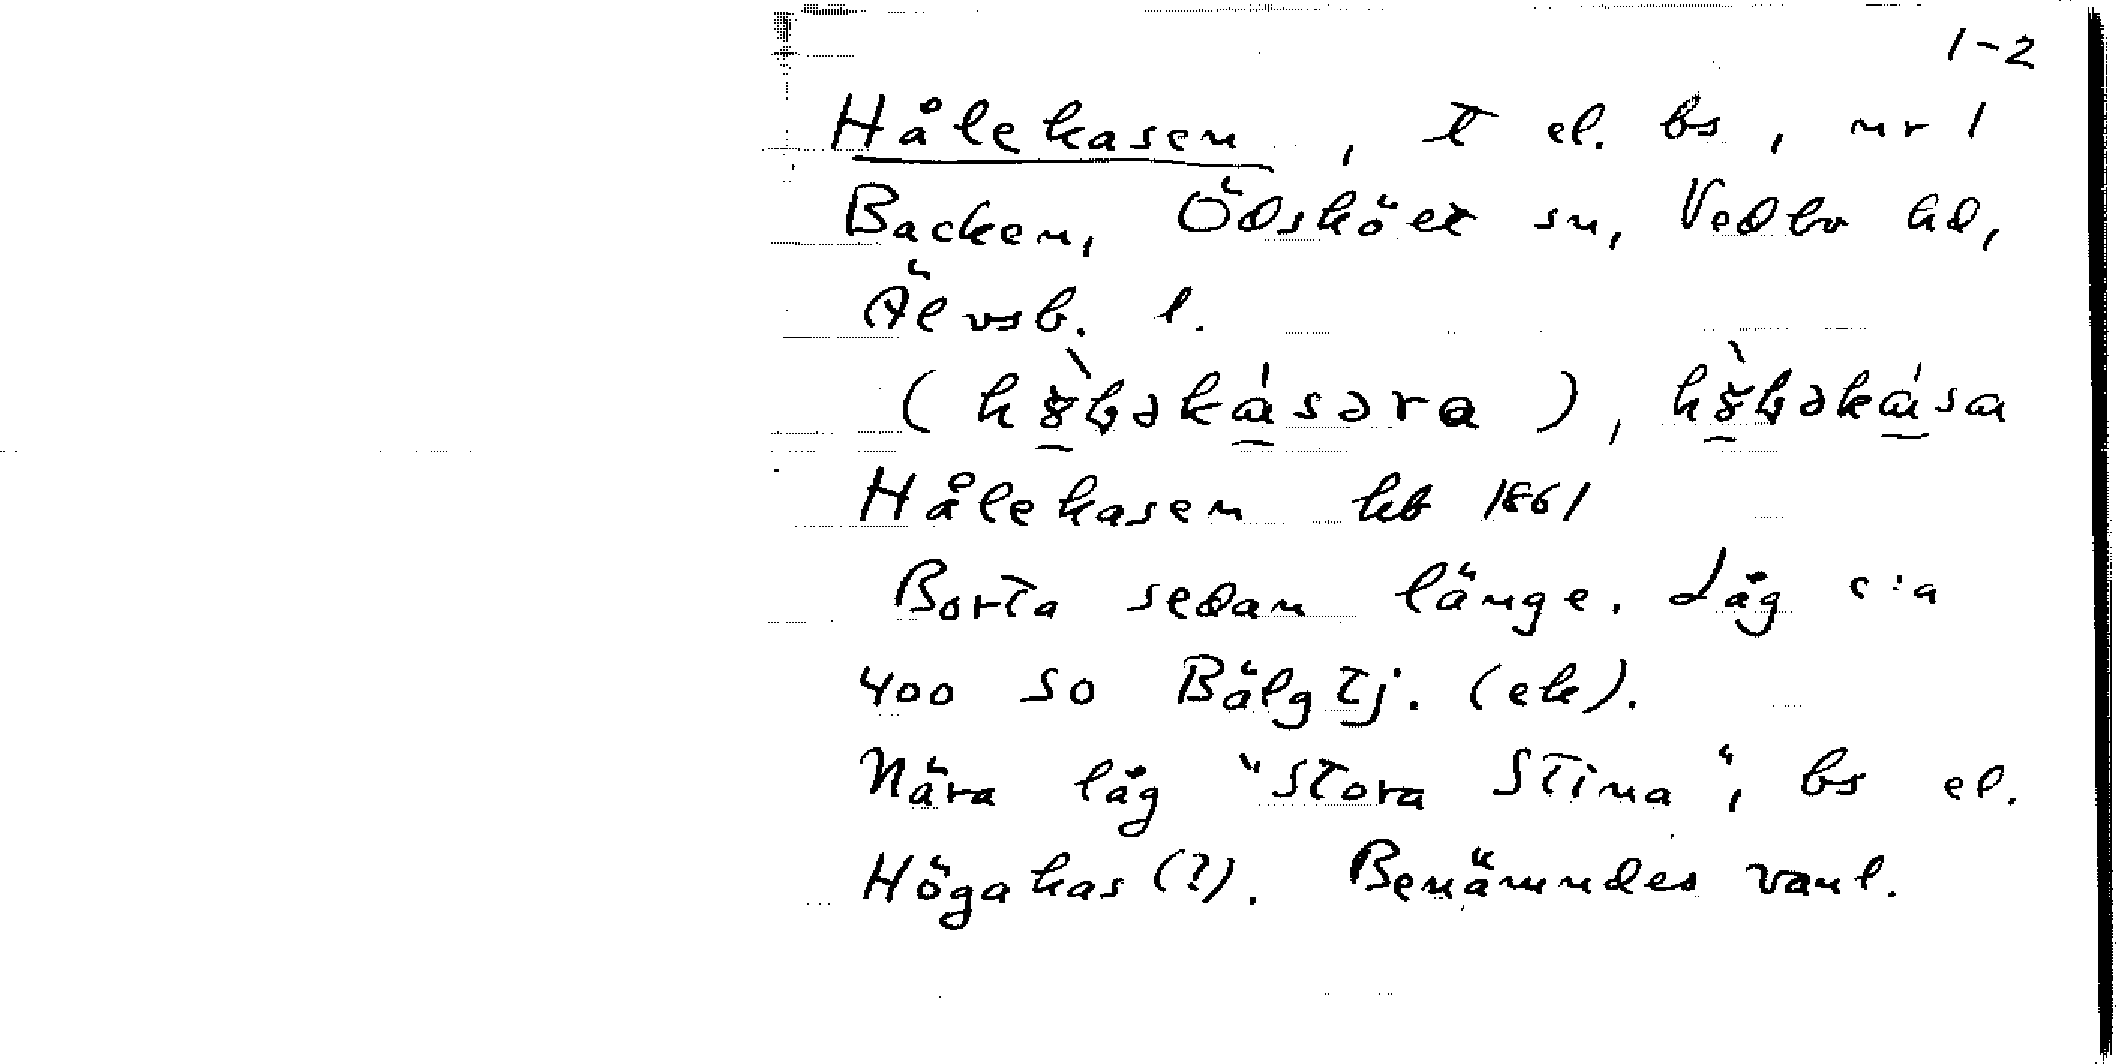 1-2
Hålekasen, t el. bs, nr 1
Backen, Ödsköelt sn, Vedbo hd,
Älvsb. l.
Hålekasen kb 1861
Borta sedan länge. Låg c:a
400 SO Bälgtj. (ek).
Nära låg "Stora Stina", bs el.
Högakas (?). Benämndes vanl.